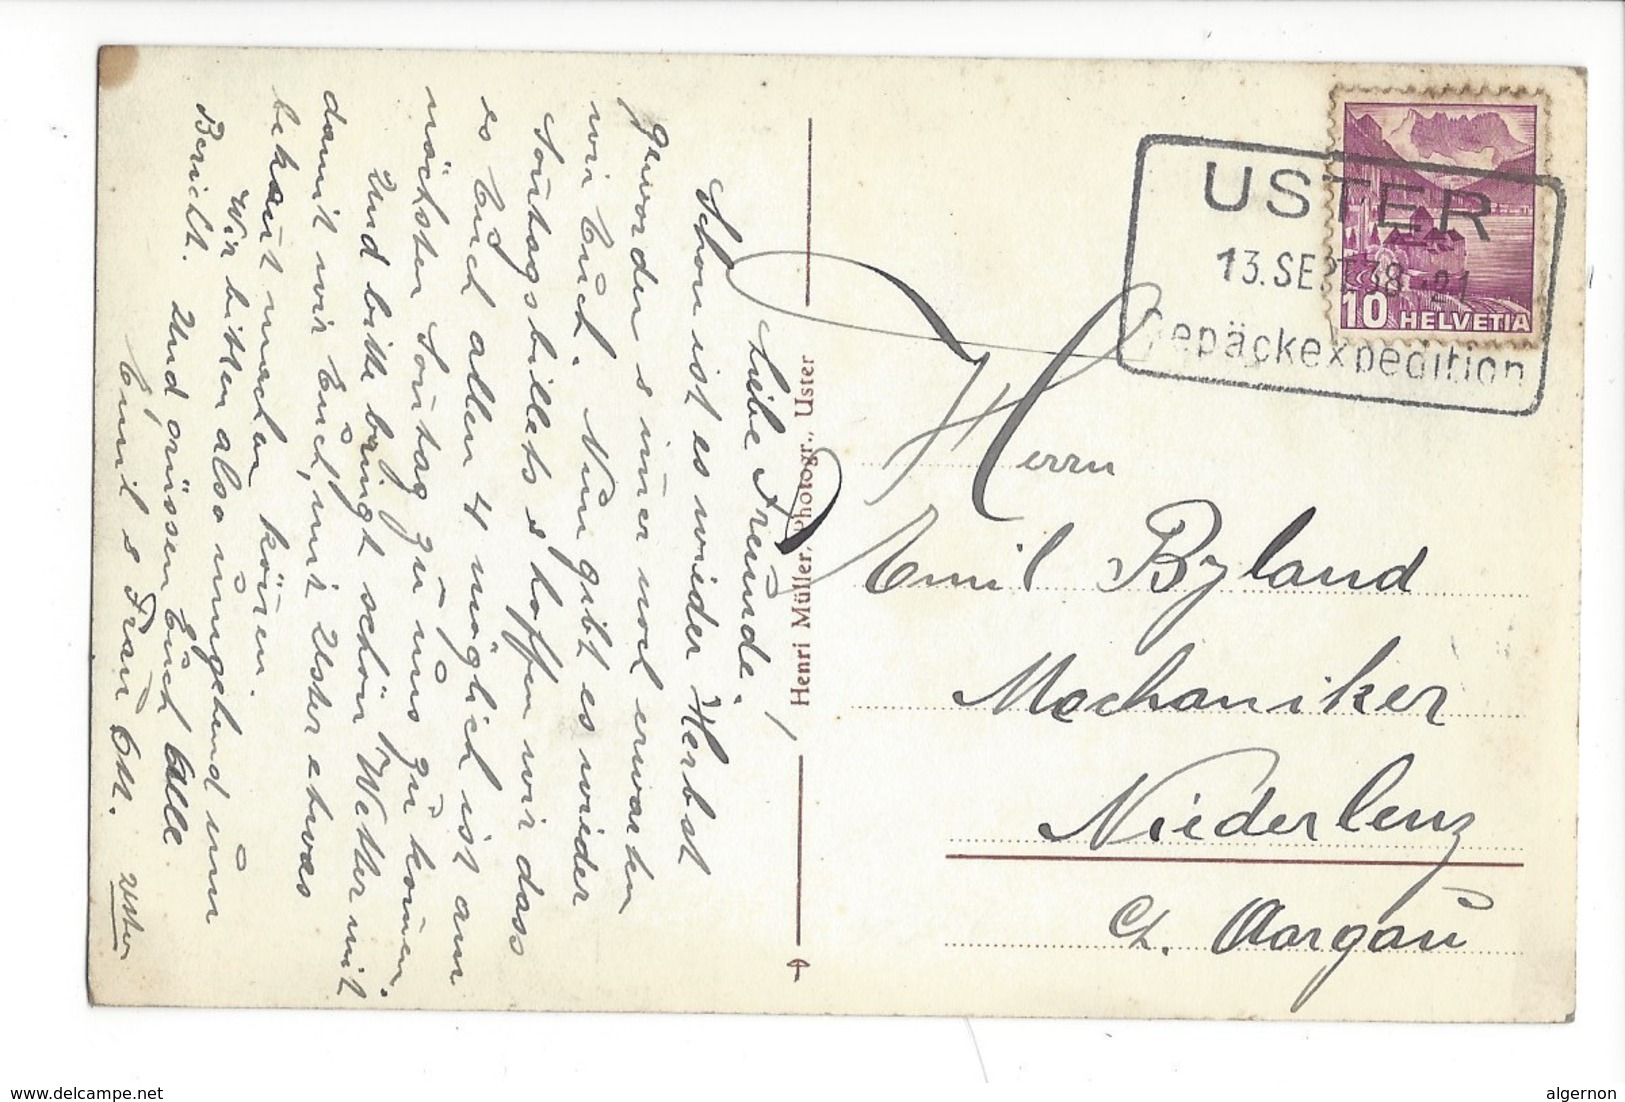 Liebe Freunde.
Schon ist es wieder Herbst
geworden & immer noch erwarten
wir Euch. Nun gibt es wieder
Sontagsbillets & hoffen wir dass
es Euch allen 4 möglich ist am
nächsten Sontag zu uns zu komen.
Und bitte bringt schön Wetter mit
damit wir Euch, mit Uster etwas
bekant machen könen.
Wir bitten also umgehend um
Bericht. Und grüssen Euch Alle
Emil & Frau Ott.
Uster
Henri Müller, Photogr., Uster
USTER
13. SEPT. 38 - 21
Gepäckexpedition
10 HELVETIA
Herrn
Emil Byland
Mechaniker
Niederlenz
Ct. Aargau
www.delcampe.net
algernon